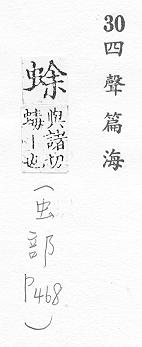 30 四聲篇海
蜍
與諸切
｜也
(虫部 P468)